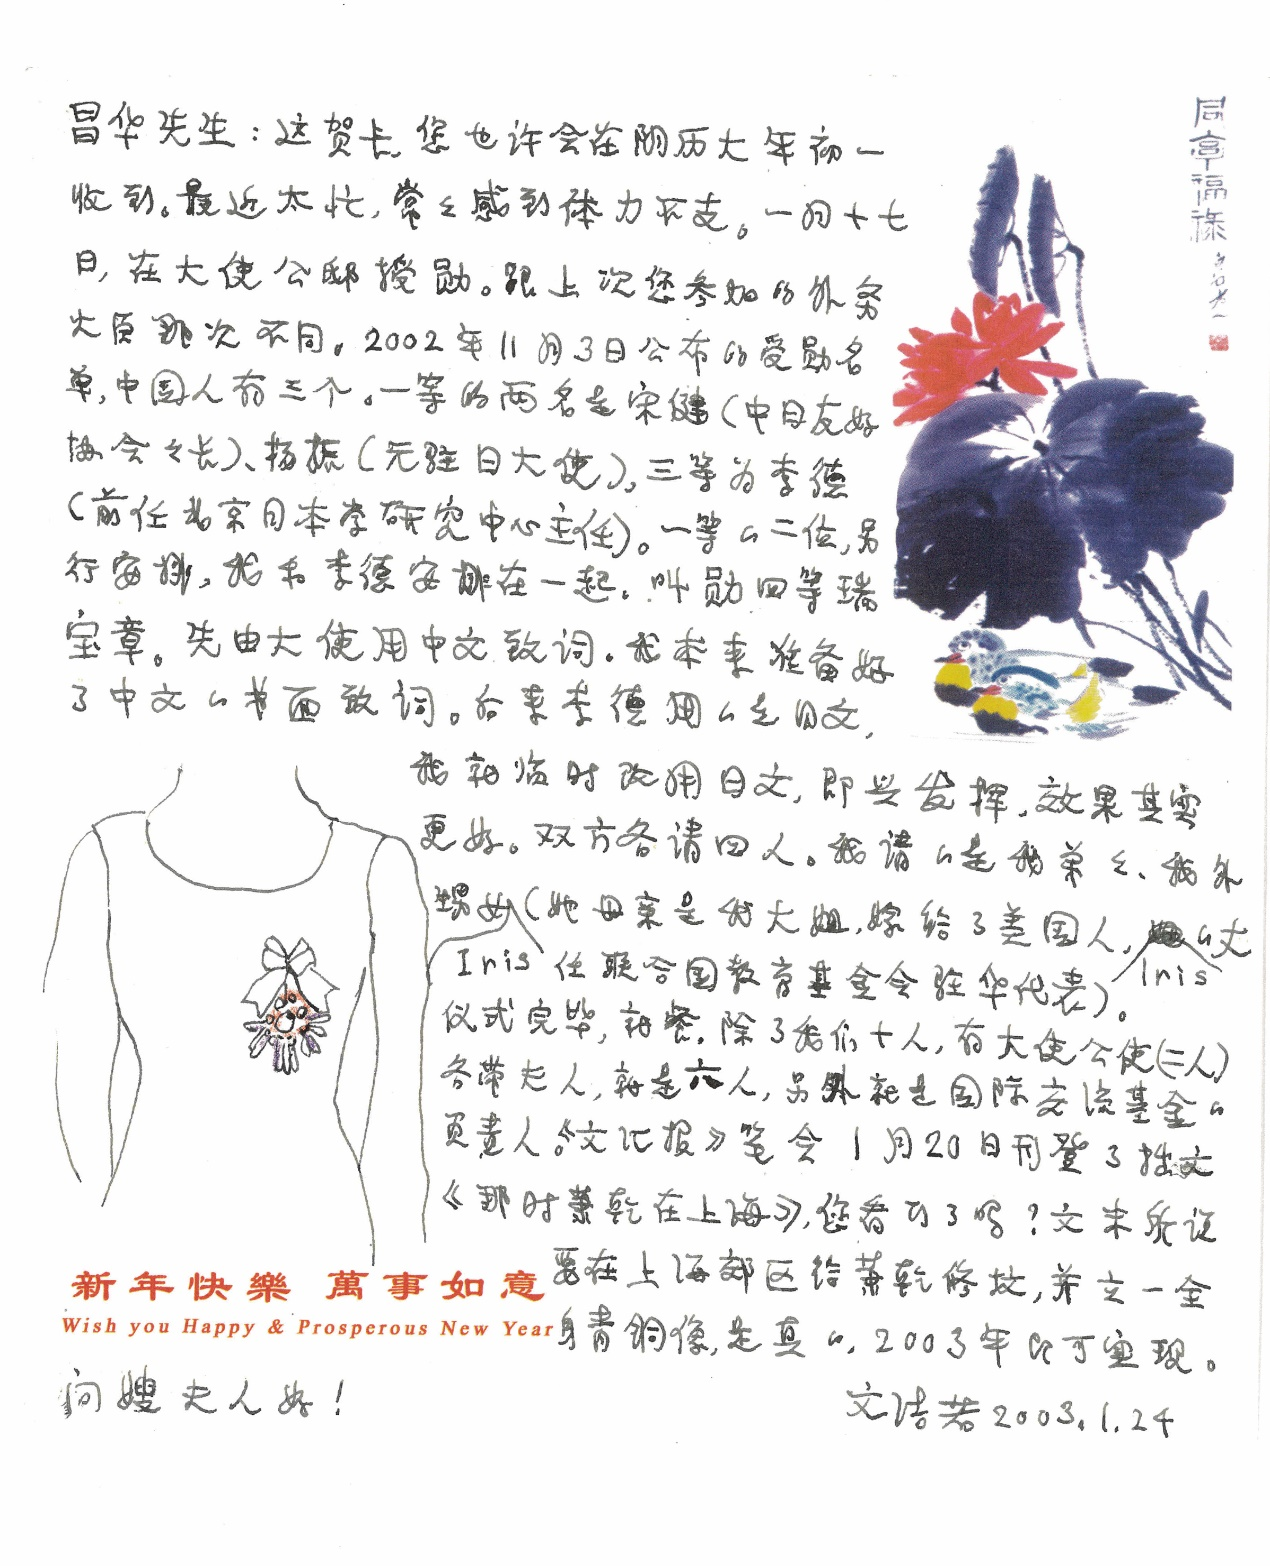 昌华先生：这贺卡，您也许会在阴历大年初一
收到。最近太忙，常々感到体力不支。一月十七
日，在大使公邸授勋。跟上次您参加的外务
大臣那次不同。2002年11月3日公布的受勋名
单，中国人有三个。一等的两名是宋健（中日友好
协会会长）、杨振（元驻日大使），三等为李德
（前任北京日本学研究中心主任）。一等的二位，另
行安排，我和李德安排在一起，叫勋四等瑞
宝章。先由大使用中文致词。我本来准备好
了中文的书面致词。后来李德用的是日文，
我就临时改用日文，即兴发挥，效果其实
更好。双方各请四人。我请的是我弟々、我外
甥女（她母亲是我大姐，嫁给了美国人，的丈
Iris 任联合国教育基金会驻华代表）。
Iris
仪式完毕，就餐。除了我们十人，有大使公使（二人）
各带夫人，就是六人，另外就是国际交流基金的
负责人。《文汇报》笔会1月20日刊登了拙文
《那时萧乾在上海》，您看到了吗？文末所说
要在上海郊区给萧乾修坟，并立一全
身青铜像，是真的，2003年即可实现。
文洁若2003.1.24
问嫂夫人好！
新年快樂 萬事如意
Wish you Happy & Prosperous New Year
同享福祿
白石老人